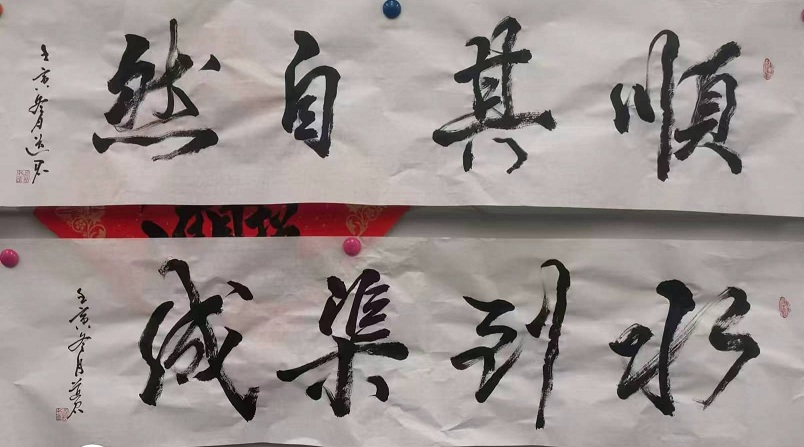 順其自然
壬寅冬月
水到渠成
壬寅冬月